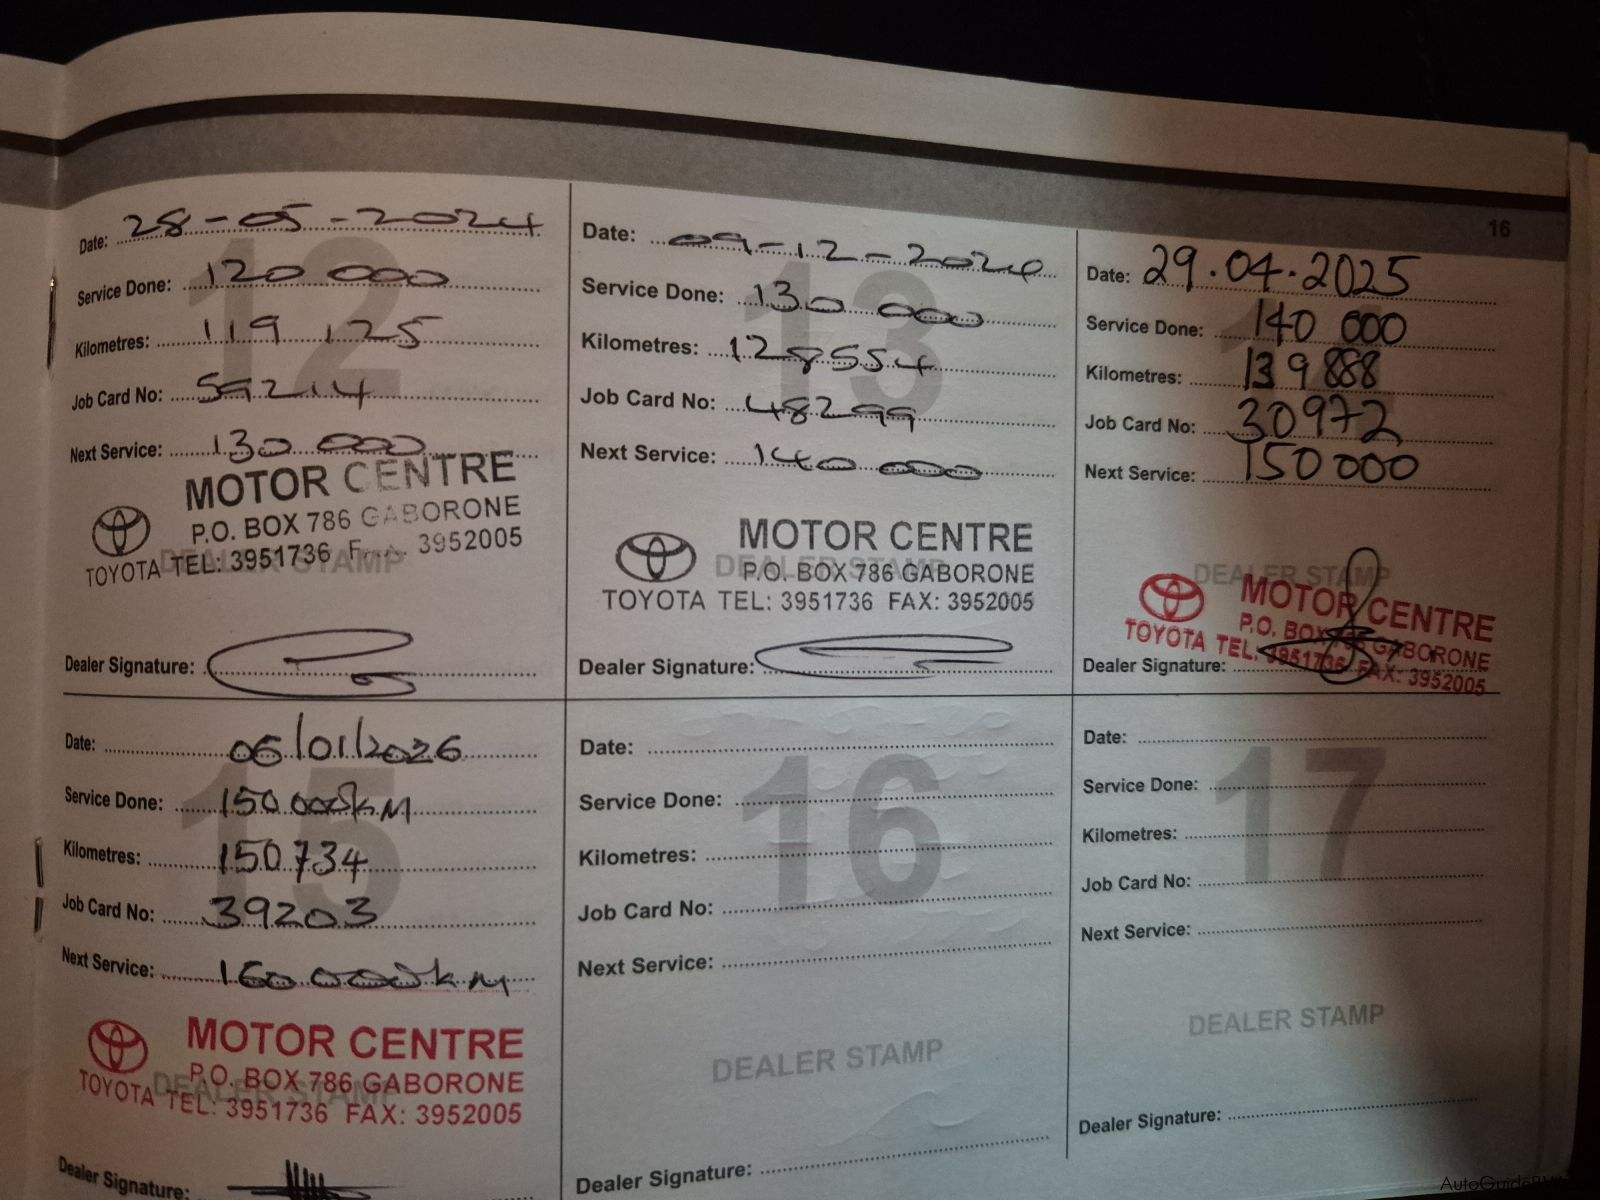 16
12
Date: 28-05-2024
Service Done: 120 000
Kilometres: 119 125
Job Card No: 59214
Next Service: 130 000
MOTOR CENTRE
P.O. BOX 786 GABORONE
TOYOTA TEL: 3951736 3952005
DEALER STAMP
Dealer Signature:
13
Date: 09-12-2024
Service Done: 130 000
Kilometres: 128554
Job Card No: 48299
Next Service: 140 000
MOTOR CENTRE
DEALER STAMP
P.O. BOX 786 GABORONE
TOYOTA TEL: 3951736 FAX: 3952005
Dealer Signature:
Date: 29.04.2025
Service Done: 140 000
Kilometres: 139888
Job Card No: 30972
Next Service: 150000
DEALER STAMP
MOTOR CENTRE
P.O. BOX 786 GABORONE
TOYOTA TEL: 3951736 FAX: 3952005
Dealer Signature:
15
Date: 06/01/2026
Service Done: 150.000KM
Kilometres: 150734
Job Card No: 39203
Next Service: 160.000KM
MOTOR CENTRE
P.O. BOX 786 GABORONE
DEALER STAMP
TOYOTA TEL: 3951736 FAX: 3952005
Dealer Signature:
16
Date:
Service Done:
Kilometres:
Job Card No:
Next Service:
DEALER STAMP
Dealer Signature:
17
Date:
Service Done:
Kilometres:
Job Card No:
Next Service:
DEALER STAMP
Dealer Signature: